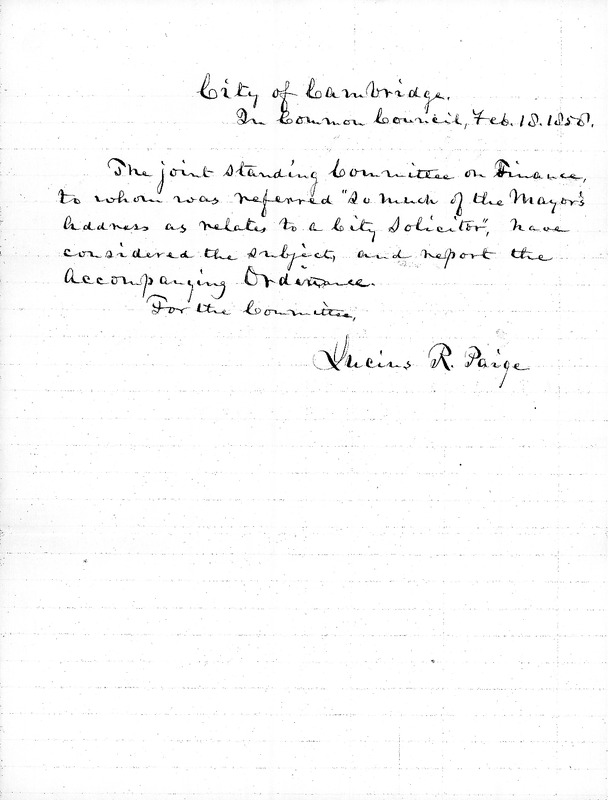 City of Cambridge.
In Common Council, Feb. 18. 1858.
The joint standing Committee on Finance,
to whom was referred "so much of the Mayor's
Address as relates to a City Solicitor", have
considered the subject, and report the
accompanying Ordinance.
For the Committee,
Lucius R. Paige